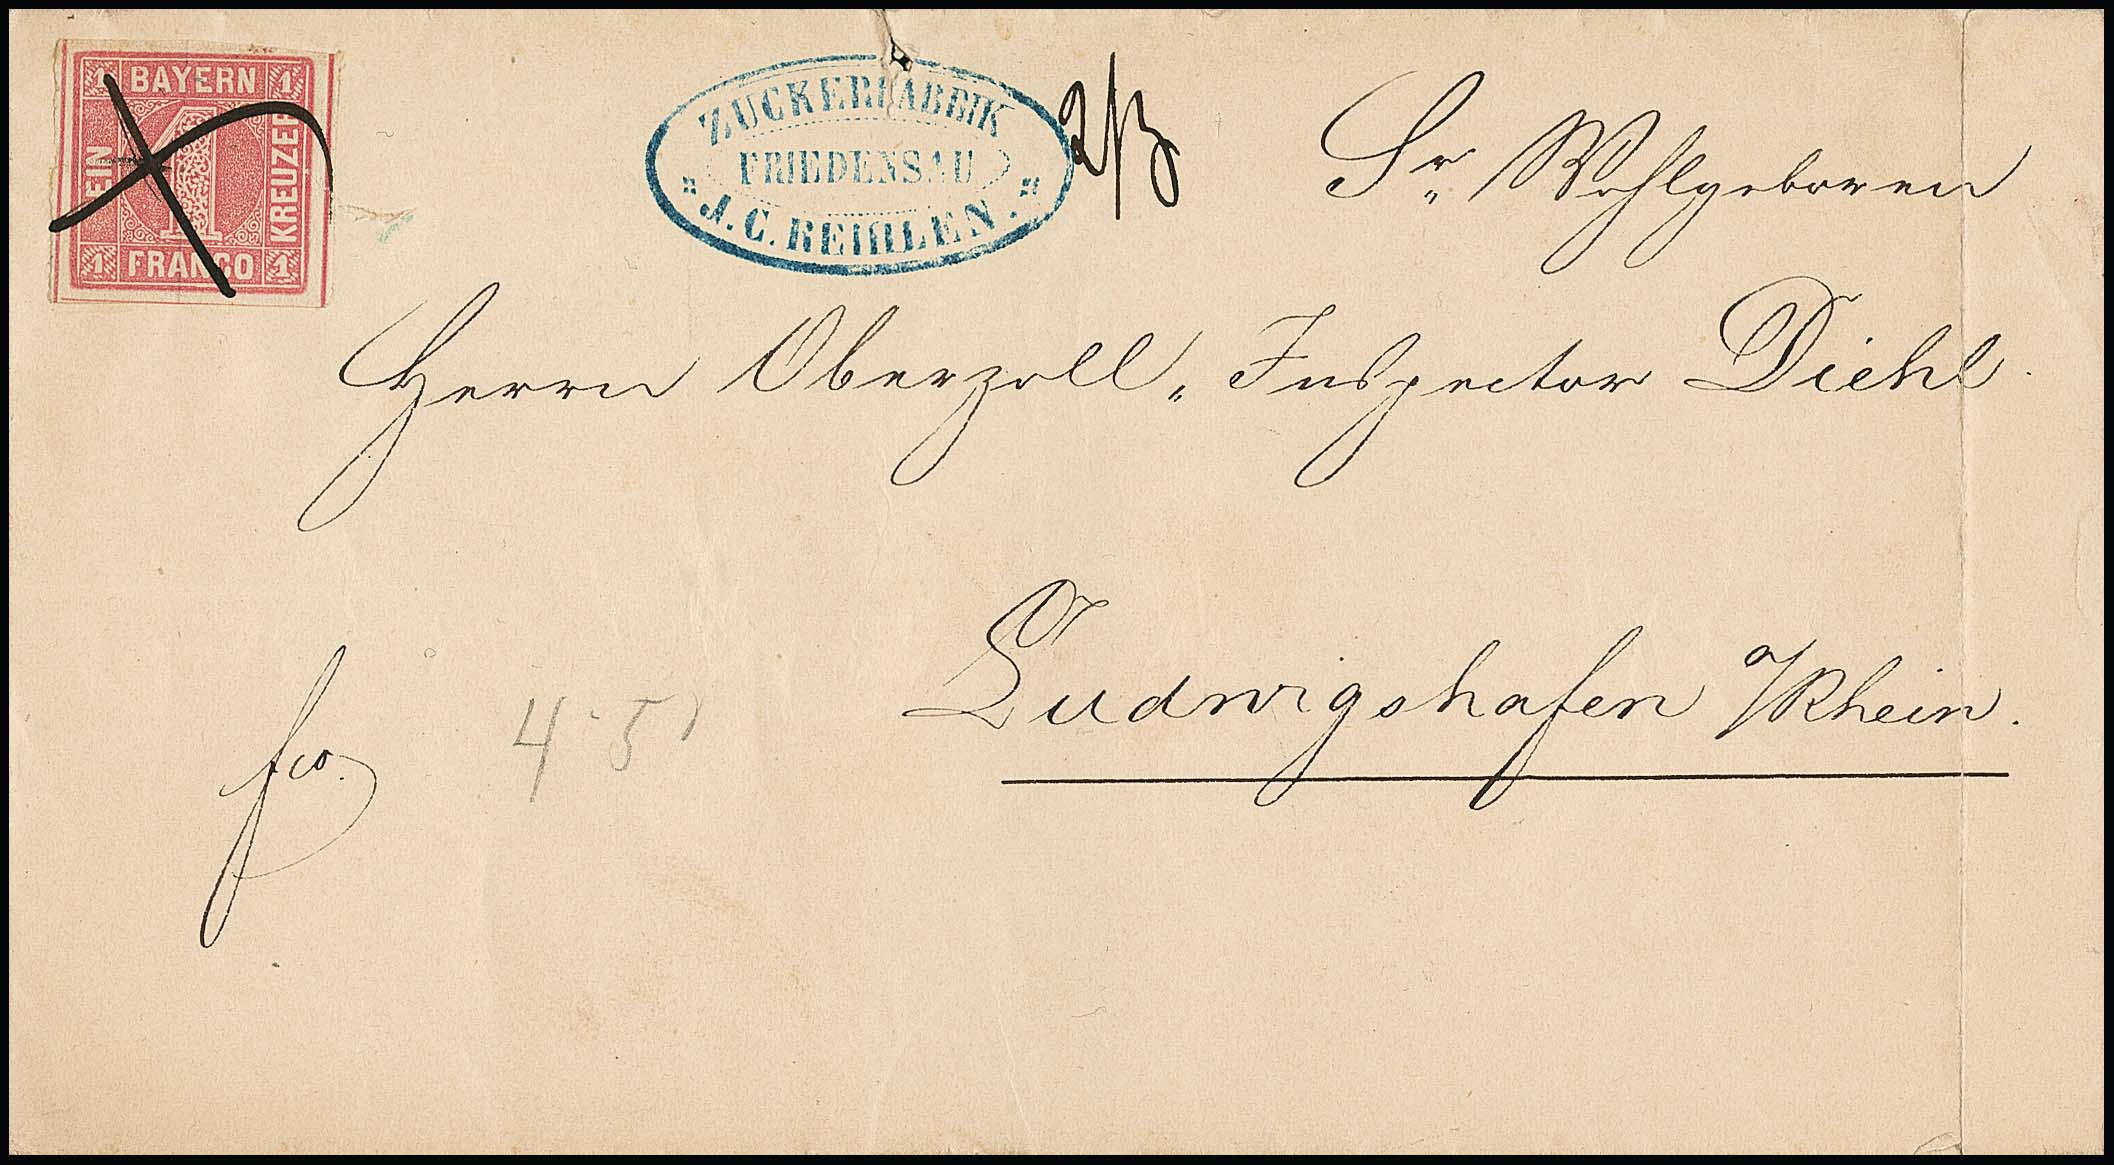 1 BAYERN 1
EIN
1
KREUZER
1 FRANCO 1
ZUCKERFABRIK
FRIEDENSAU
J. C. REIHLEN.
2/3
Sr. Wohlgeboren
Herrn Oberzoll„ Inspector Diehl.
Ludwigshafen a/Rhein.
fco.
4·5